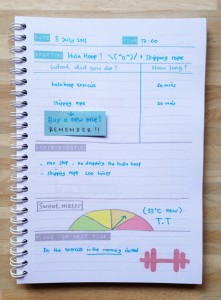 DATE 5 July 2013 TIME 17:00
EXERCISE Hula Hoop! \(^o^)/ + Skipping rope
What did you do? How long?
hula hoop exercise 20 mins
Skipping rope 20 mins
Buy a new one!
REMEMBER!!
- non stop - no dropping the hula hoop
- skipping rope 200 times
Sweat meter
(33°C now)
T.T
Do the exercise in the morning instead